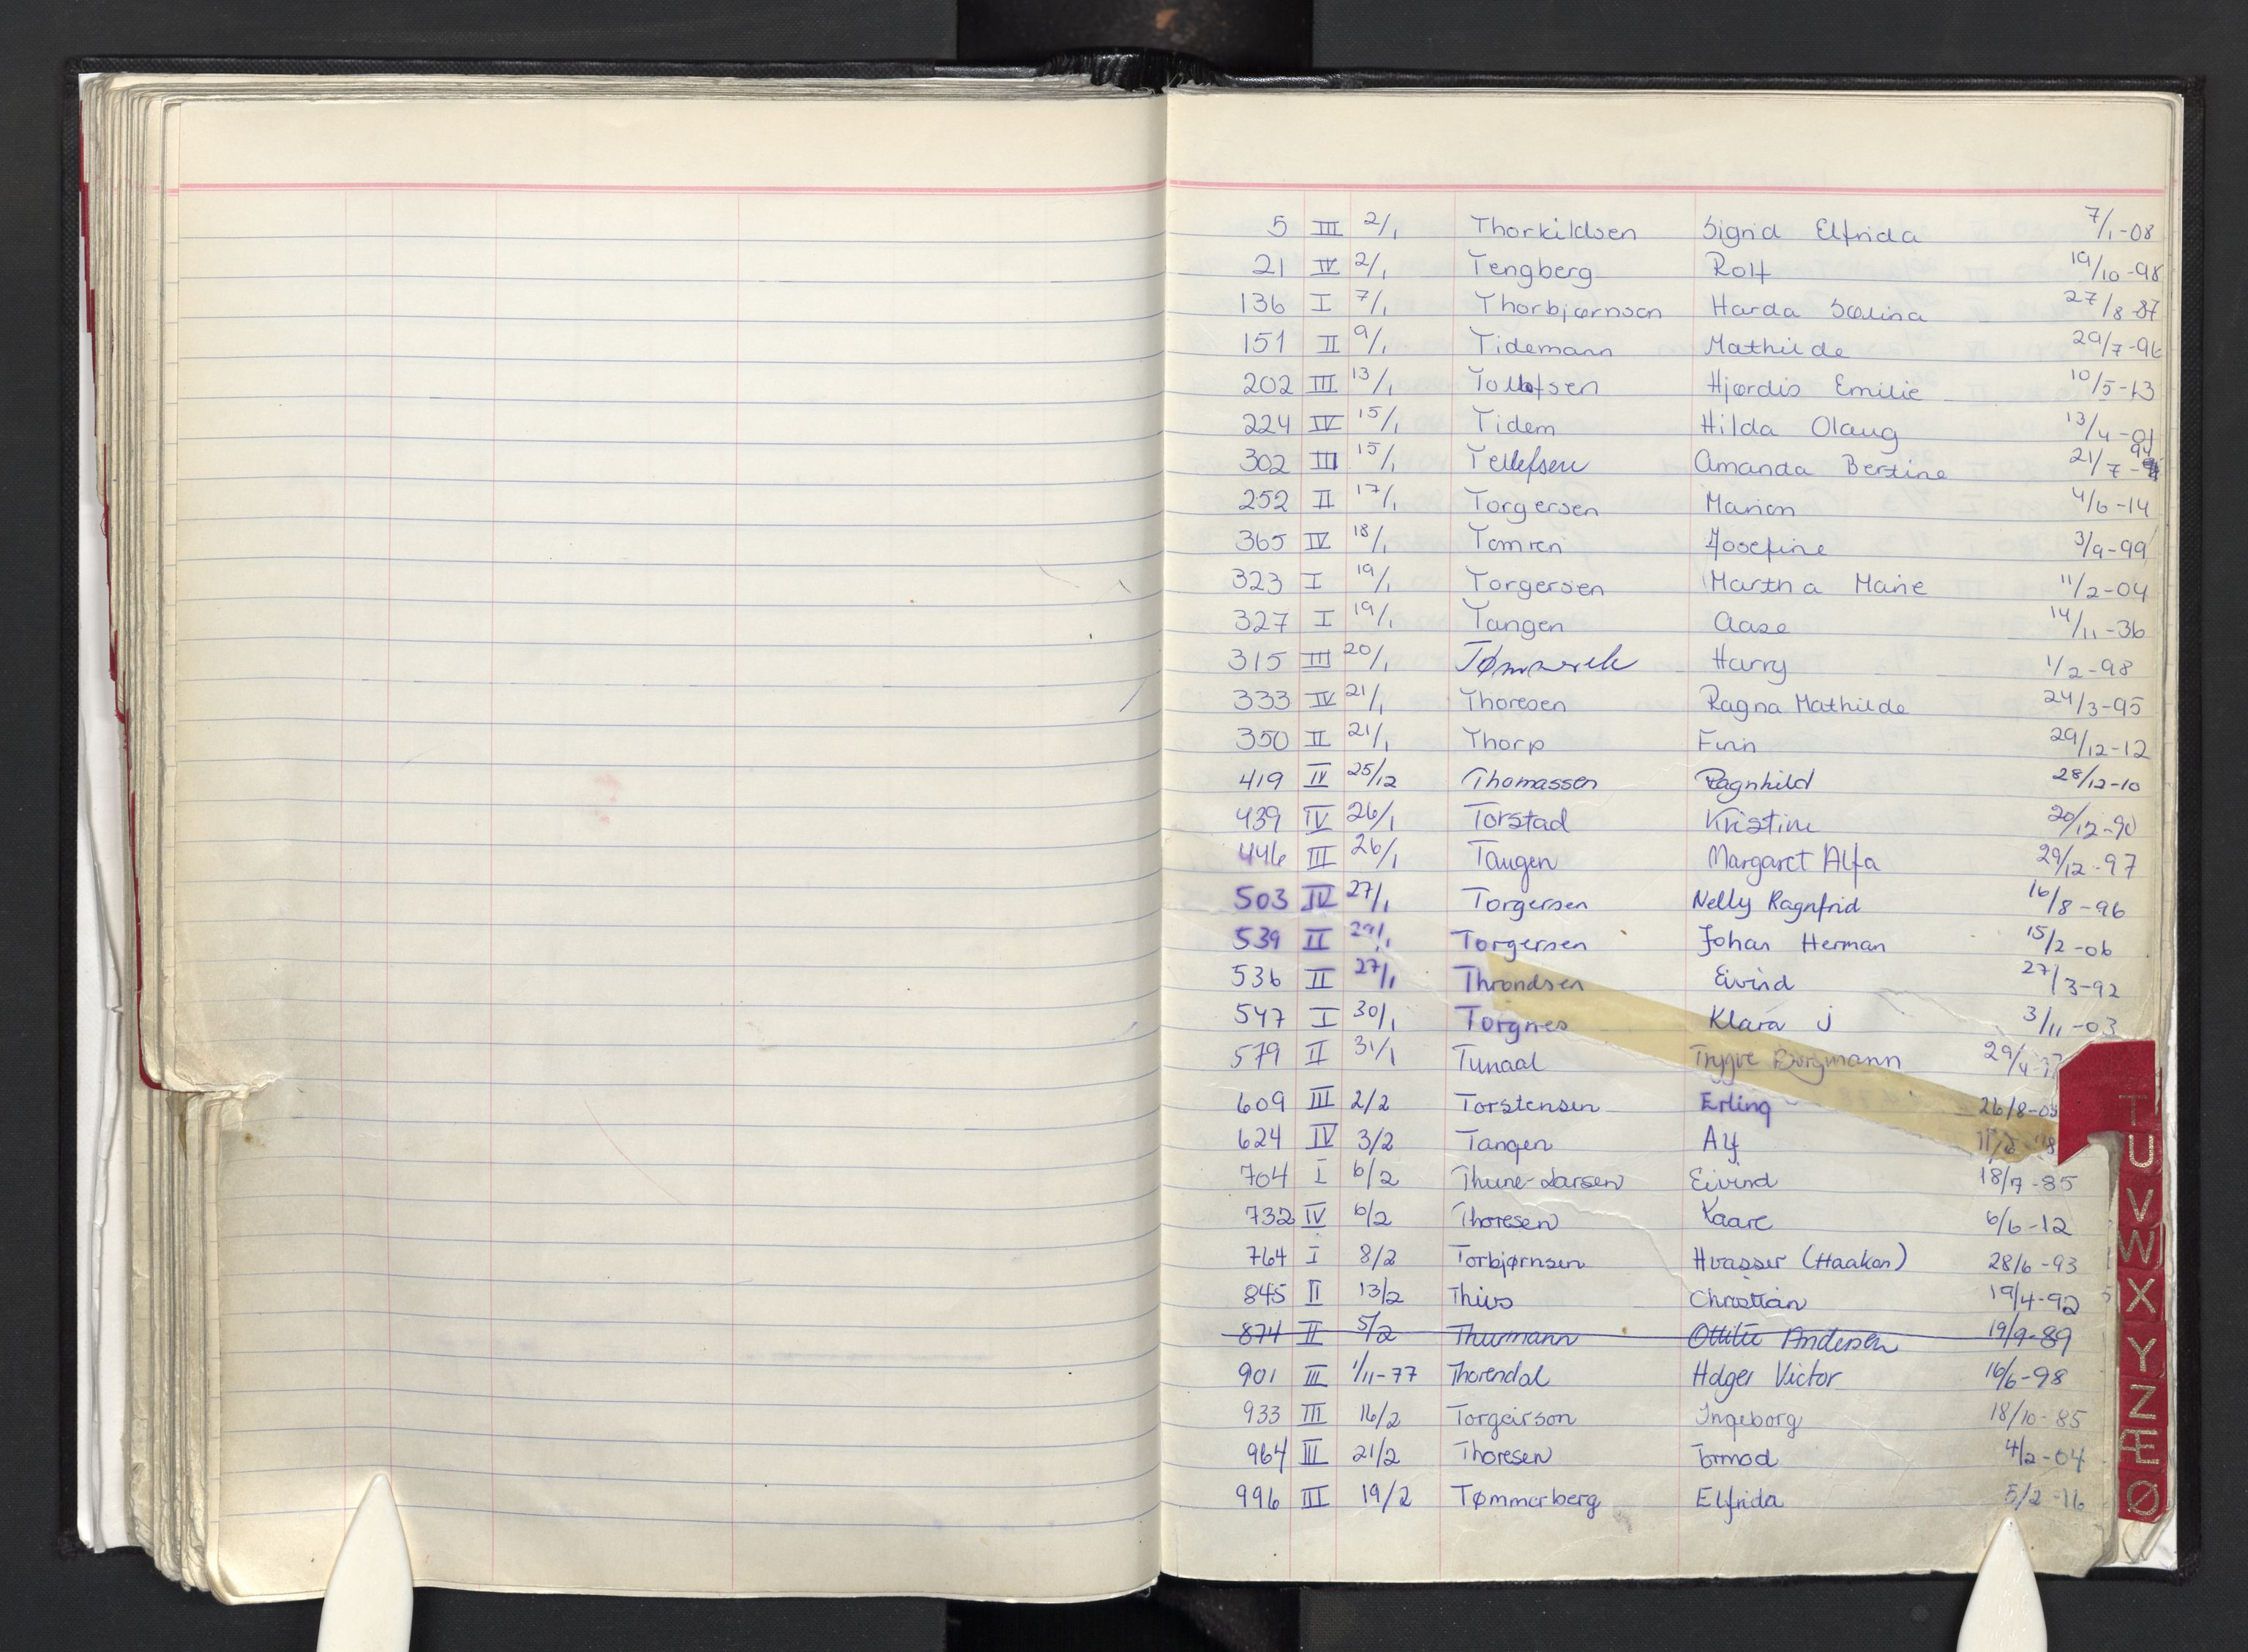 5 III 2/1 Thorkildsen Sigrid Elfrida 7/1-08
21 IV 2/1 Tengberg Rolf 19/10-98
136 I 7/1 Thorbjørnsen Harda 27/8-87
151 II 9/1 Tidemann Mathilde 29/7-96
202 III 13/1 Tollefsen Hjørdis Emilie 10/5-13
224 IV 15/1 Tidem Hilda Olaug 13/4-01
302 III 15/1 Tellefsen Amanda Bertine 21/7-94
252 II 17/1 Torgersen Marion 4/6-14
365 IV 18/1 Tomren Josefine 3/9-99
323 I 19/1 Torgersen Martha Marie 11/2-04
327 I 19/1 Tangen Aase 14/11-36
315 III 20/1 Harry 1/2-98
333 IV 21/1 Thoresen Ragna Mathilde 24/3-95
350 II 21/1 Thorp Finn 29/12-12
419 IV 25/12 Thomassen Ragnhild 28/12-10
439 IV 26/1 Torstad Kristine 20/12-90
446 III 26/1 Tangen Margaret Alfa 29/12-97
503 IV 27/1 Torgersen Nelly Ragnfrid 16/8-96
539 II 29/1 Torgersen Johan Herman 15/2-06
536 II 27/1 Throndsen Eivind 27/3-92
547 I 30/1 Torgnes Klara J 3/11-03
579 II 31/1 Tunaal Trygve Borgmann
609 III 2/2 Torstensen Erling
624 IV 3/2 Tangen Alf
704 I 6/2 Thune-Larsen Eivind 18/7-85
732 IV 6/2 Thoresen Kaare 6/6-12
764 I 8/2 Torbjørnsen Hvasser (Haakon) 28/6-93
845 II 13/2 Christian 19/4-92
874 II 5/2 Thurmann Ottilie Andersen 19/9-89
901 III 1/11-77 Thorendal Holger Victor 16/6-98
933 III 16/2 Torgeirson Ingeborg 18/10-85
964 III 21/2 Thoresen Tormod 4/2-04
996 III 19/2 Tømmerberg Elfrida 5/2-16
T
U
V
W
X
Y
Z
Æ
Ø